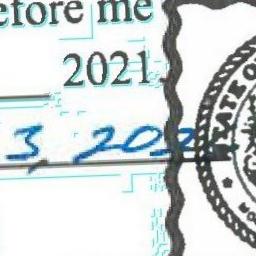 efore me
2021
3, 202
TATE O
MO